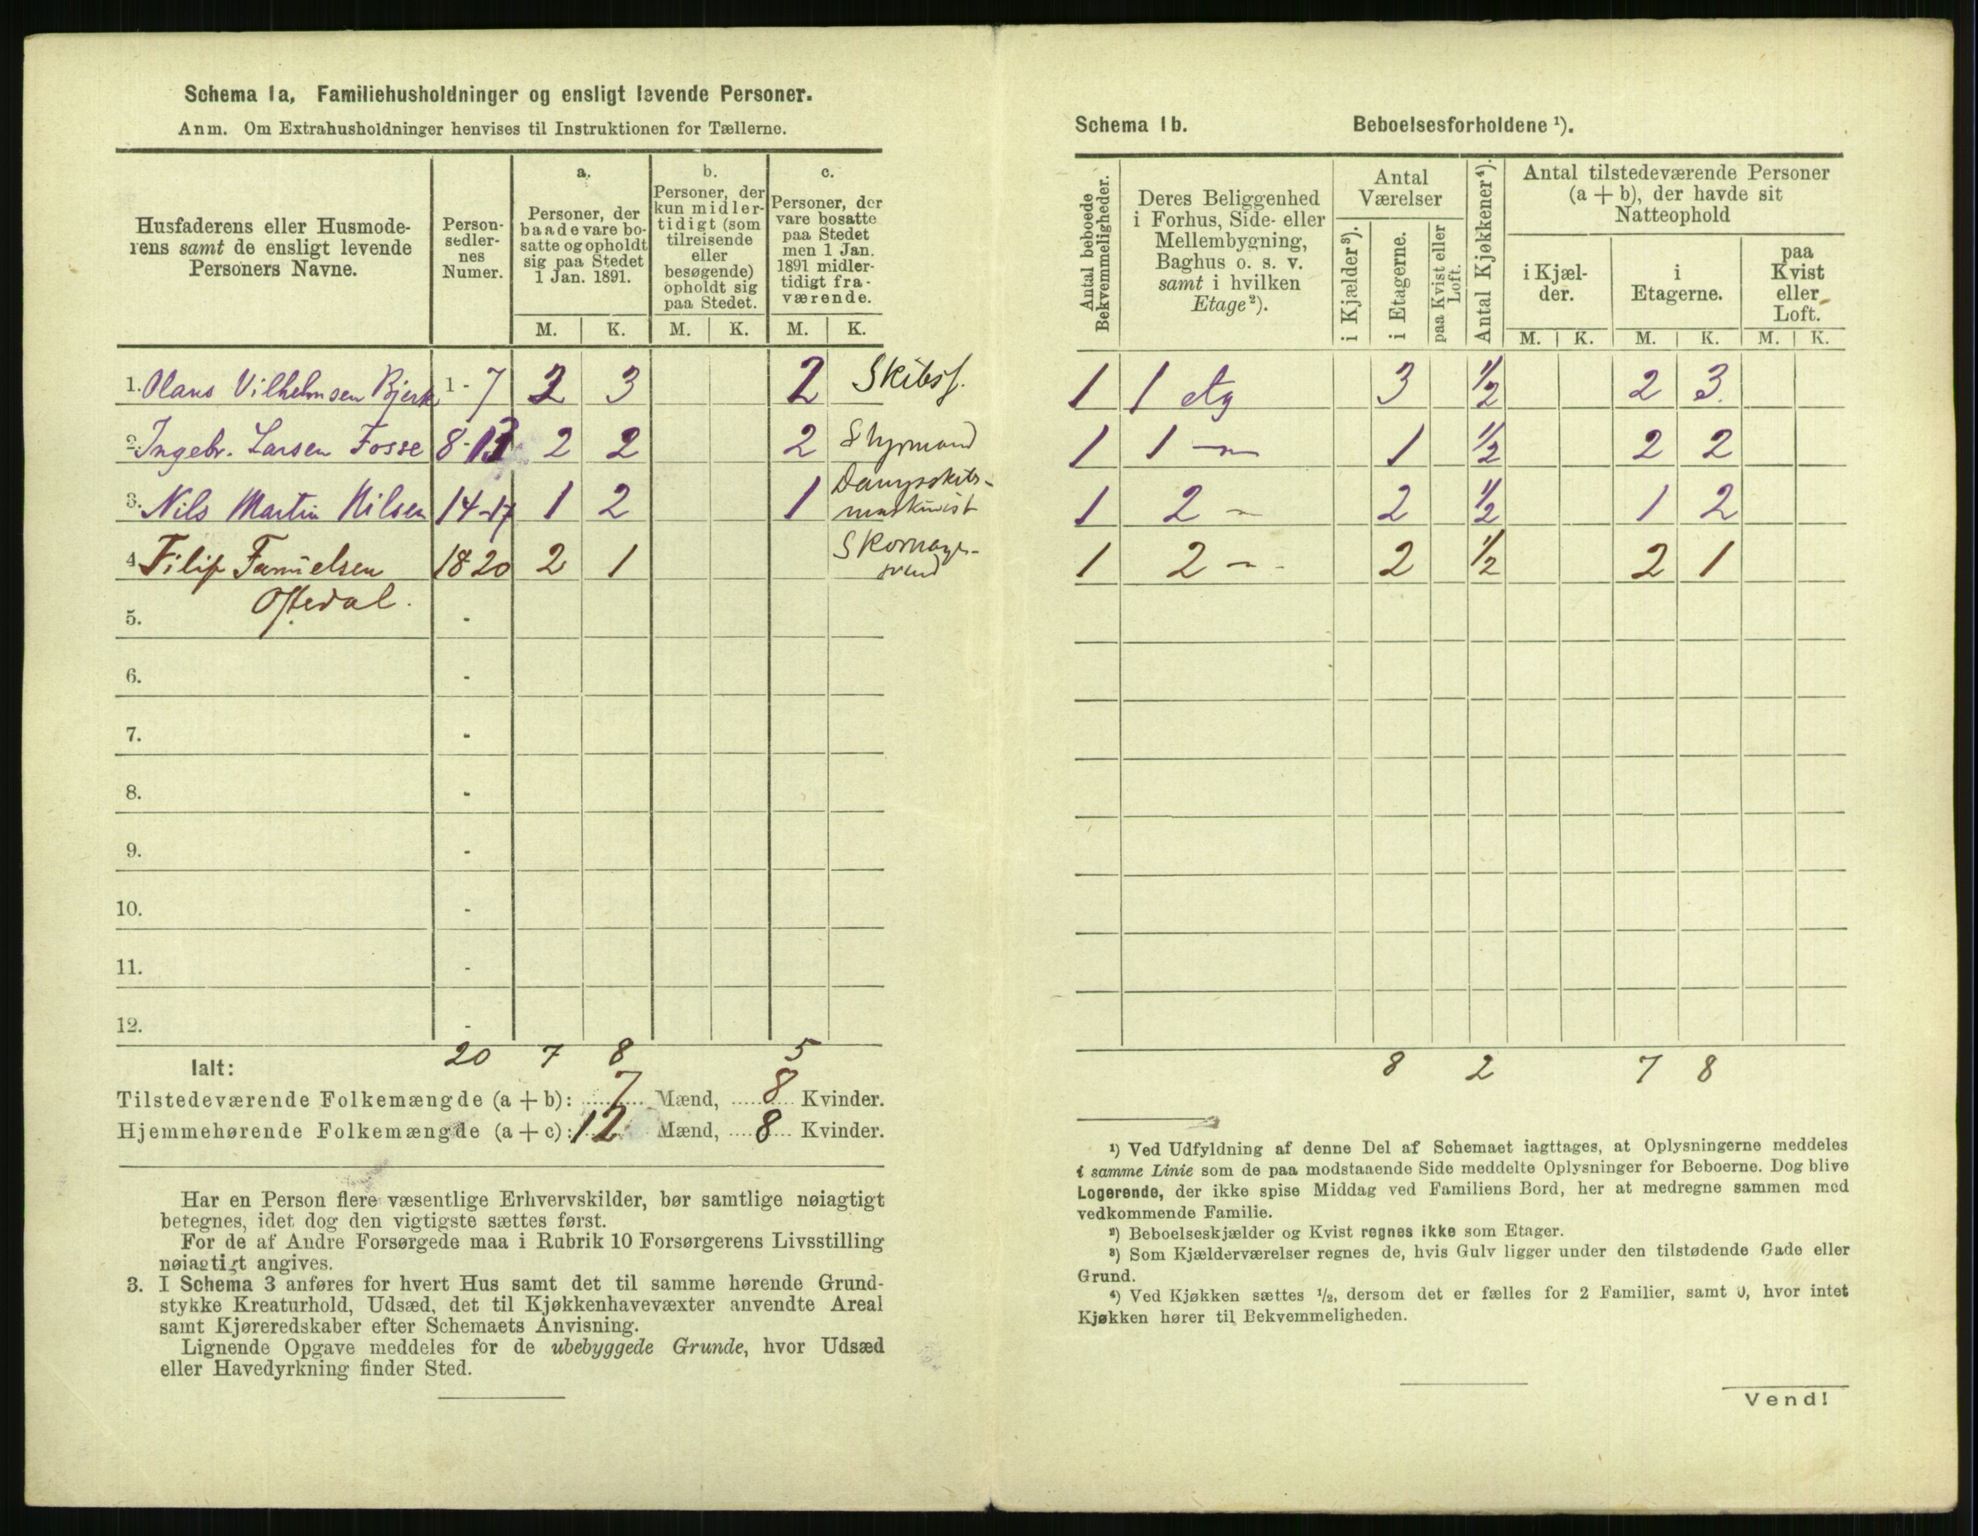 Schema 1a, Familiehusholdninger og ensligt levende Personer.
Anm. Om Extrahusholdninger henvises til Instruktionen for Tællerne.
Husfaderens eller Husmode-
rens samt de ensligt levende
Personers Navne.
Person-
sedler-
nes
Numer.
a.
Personer, der
baade vare bo-
satte og opholdt
sig paa Stedet
1 Jan. 1891.
b.
Personer, der
kun midler-
tidigt (som
tilreisende
eller
besøgende)
opholdt sig
paa Stedet.
c.
Personer, der
vare bosatte
paa Stedet
men 1 Jan.
1891 midler-
tidigt fra-
værende.
M. K. M. K. M. K.
1. Olaus Vilhelmsen Bjerk 1 - 7 2 3 2 Skibsf.
2. Ingebr. Larsen Fosse 8 - 13 2 2 2 Styrmand
3. Nils Martin Nilsen 14 - 17 1 2 1 Dampskibs-
maskinist
4. Filip Samuelsen 18 - 20 2 1 Skomager-
svend
Oftedal.
5. -
6. -
7. -
8. -
9. -
10. -
11. -
12. -
Ialt: 20 7 8 5
Tilstedeværende Folkemængde (a + b): 7 Mænd, 8 Kvinder.
Hjemmehørende Folkemængde (a + c): 12 Mænd, 8 Kvinder.
Har en Person flere væsentlige Erhvervskilder, bør samtlige nøiagtigt
betegnes, idet dog den vigtigste sættes først.
For de af Andre Forsørgede maa i Rubrik 10 Forsørgerens Livsstilling
nøiagtigt angives.
3. I Schema 3 anføres for hvert Hus samt det til samme hørende Grund-
stykke Kreaturhold, Udsæd, det til Kjøkkenhavevæxter anvendte Areal
samt Kjøreredskaber efter Schemaets Anvisning.
Lignende Opgave meddeles for de ubebyggede Grunde, hvor Udsæd
eller Havedyrkning finder Sted.
Schema 1b. Beboelsesforholdene ¹).
Antal beboede
Bekvemmeligheder.
Deres Beliggenhed
i Forhus, Side- eller
Mellembygning,
Baghus o. s. v.
samt i hvilken
Etage²).
Antal
Værelser
i Kjælder³).
i Etagerne.
paa Kvist eller
Loft.
Antal Kjøkkener⁴).
Antal tilstedeværende Personer
(a + b), der havde sit
Natteophold
i Kjæl-
der.
i
Etagerne.
paa
Kvist
eller
Loft.
M. K. M. K. M. K.
1 1 etg 3 ½ 2 3
1 1 — 1 ½ 2 2
1 2 — 2 ½ 1 2
1 2 — 2 ½ 2 1
8 2 7 8
¹) Ved Udfyldning af denne Del af Schemaet iagttages, at Oplysningerne meddeles
i samme Linie som de paa modstaaende Side meddelte Oplysninger for Beboerne. Dog blive
Logerende, der ikke spise Middag ved Familiens Bord, her at medregne sammen med
vedkommende Familie.
²) Beboelseskjælder og Kvist regnes ikke som Etager.
³) Som Kjælderværelser regnes de, hvis Gulv ligger under den tilstødende Gade eller
Grund.
⁴) Ved Kjøkken sættes ½, dersom det er fælles for 2 Familier, samt 0, hvor intet
Kjøkken hører til Bekvemmeligheden.
Vend!